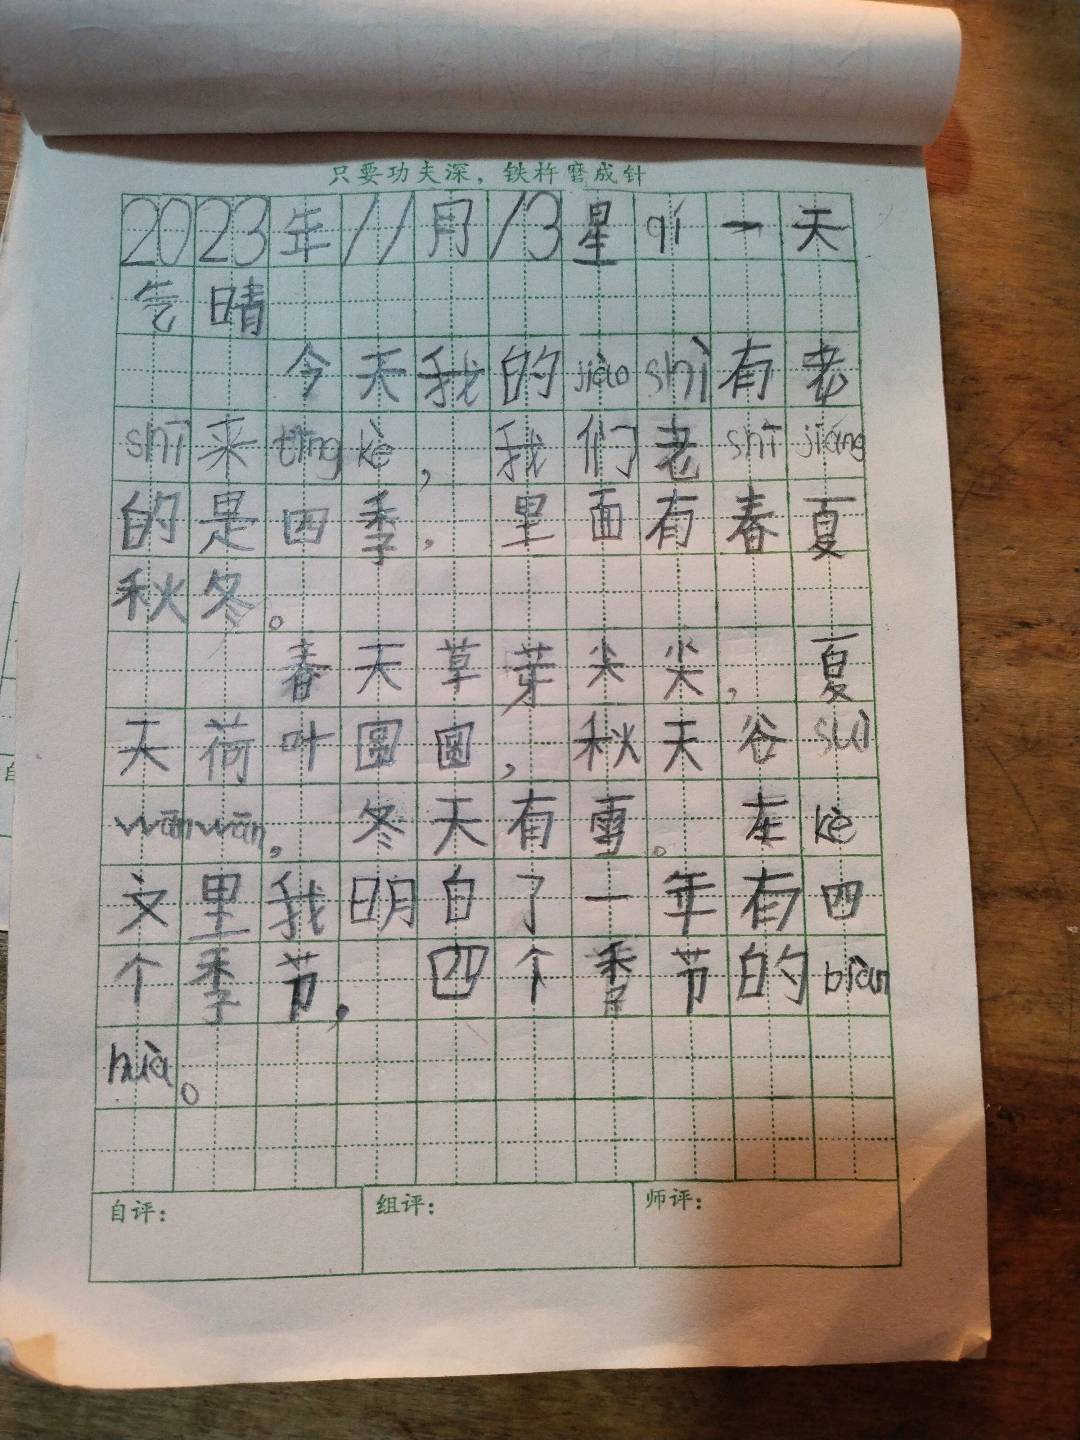 只要功夫深，铁杵磨成针
2023年11月13星qí一天
气晴
今天我的jiào shì有老
shī来tīng kè，我们老shī jiǎng
的是四季，里面有春夏
秋冬。
春天草芽尖尖，夏
天荷叶圆圆，秋天谷suì
wānwān，冬天有雪。在kè
文里我明白了一年有四
个季节，四个季节的biàn
huà。
自评： 组评： 师评：